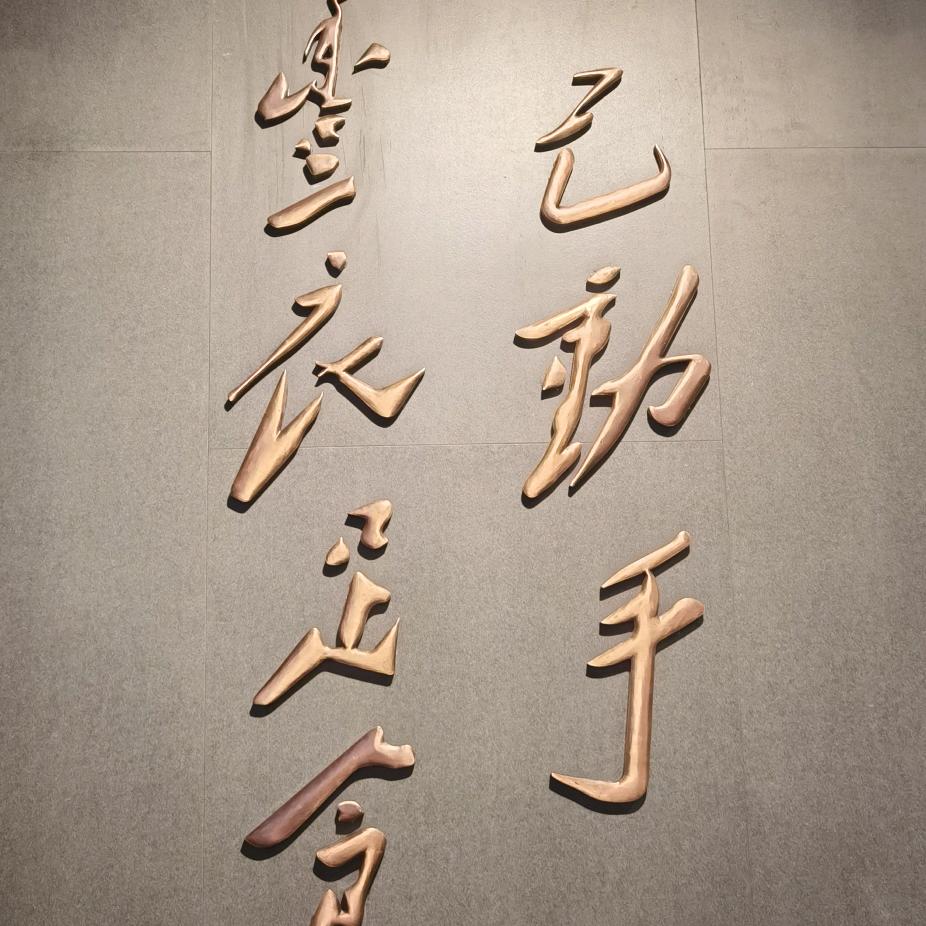 己動手
豐衣足食